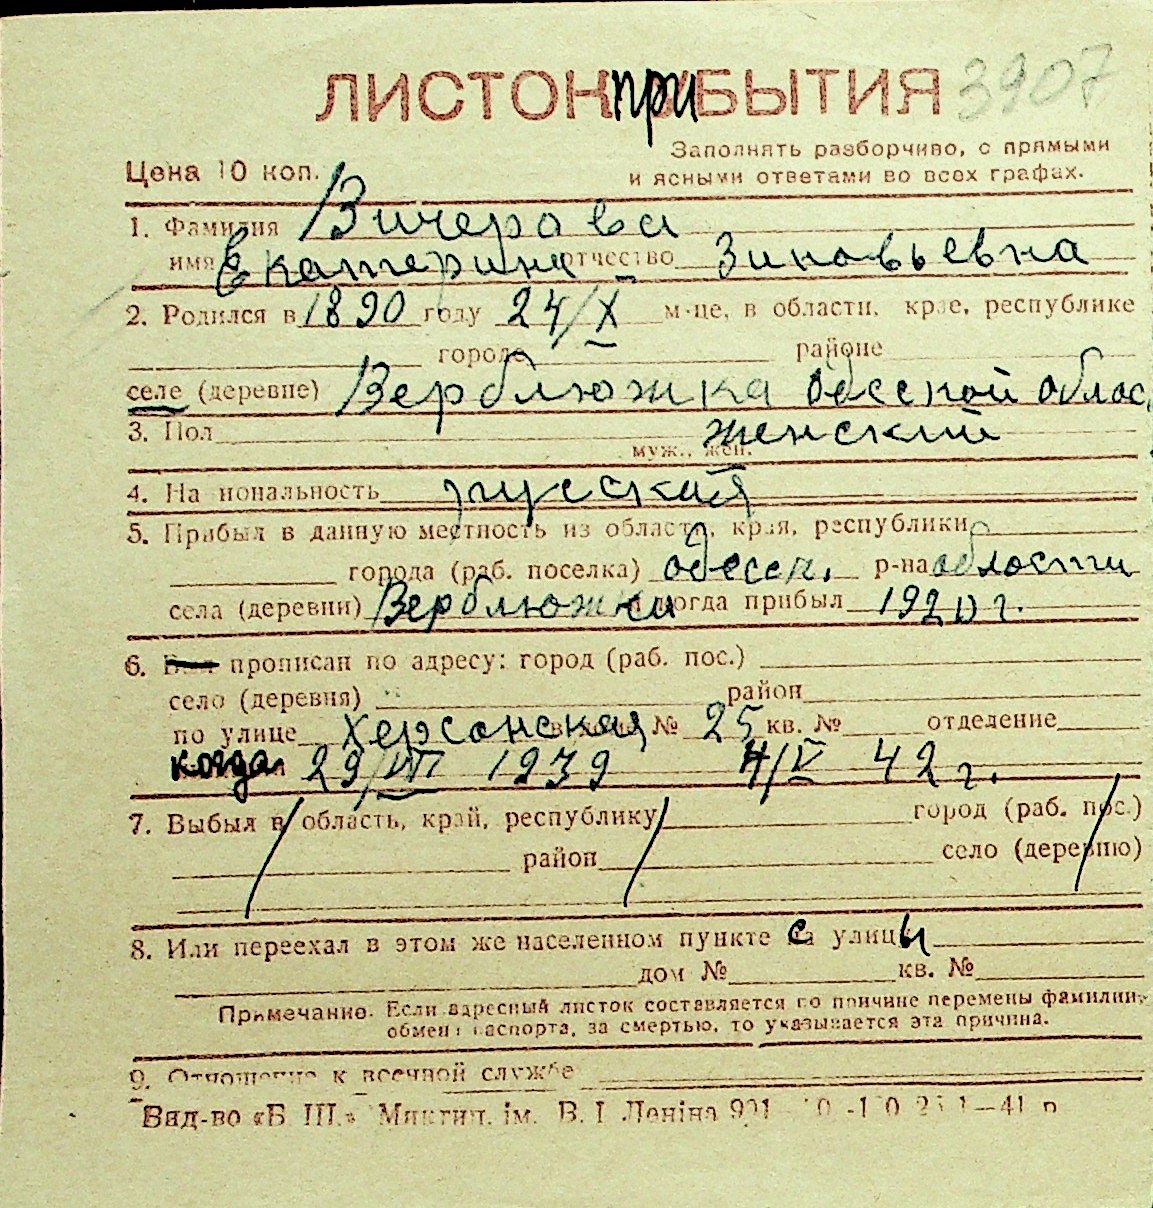 ЛИСТОК ПРИБЫТИЯ 3907
Заполнять разборчиво, с прямыми
Цена 10 коп. и ясными ответами во всех графах.
1. Фамилия Вичерова
имя Екатерина отчество Зиновьевна
2. Родился в 1890 году 24/X м-це, в области, крае, республике
городе районе
селе (деревне) Верблюжка одесской облас.
3. Пол женский
муж., жен.
4. Национальность русская
5. Прибыл в данную местность из области, края, республики
города (раб. поселка) одесск. р-на области
села (деревни) Верблюжки когда прибыл 1920 г.
6. прописан по адресу: город (раб. пос.)
село (деревня) район
по улице Херсонская № 25 кв. № отделение
когда 29/VIII 1939 4/V 42 г.
7. Выбыл в область, край, республику город (раб. пос.)
район село (деревню)
8. Или переехал в этом же населенном пункте с улицы
дом № кв. №
Примечание. Если адресный листок составляется по причине перемены фамилии,
обмена паспорта, за смертью, то указывается эта причина.
9. Отношение к военной службе
Вид-во «Б. Ш.» ім. В. І Леніна